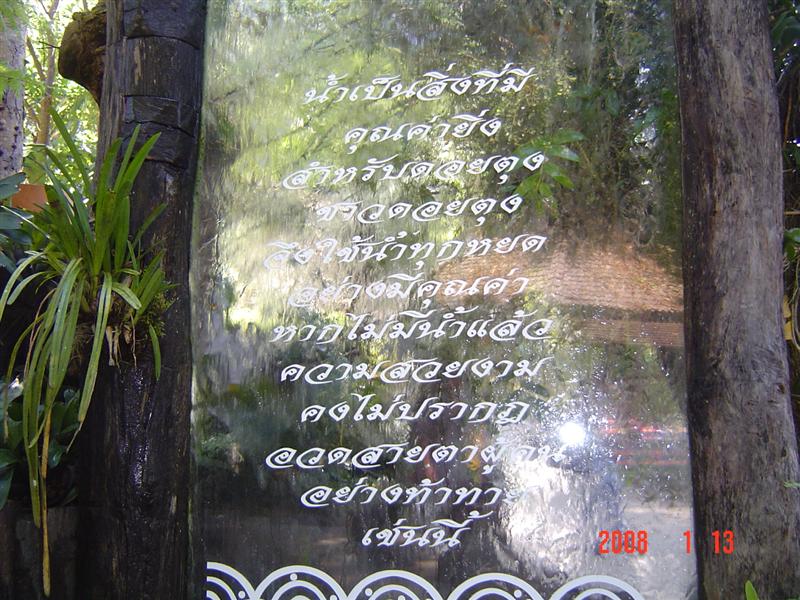 น้ำเป็นสิ่งที่มี
คุณค่ายิ่ง
สำหรับดอยตุง
ชาวดอยตุง
จึงใช้น้ำทุกหยด
อย่างมีคุณค่า
หากไม่มีน้ำแล้ว
ความสวยงาม
คงไม่ปรากฏ
อวดสายตาผู้คน
อย่างท้าทาย
เช่นนี้
2008 1 13